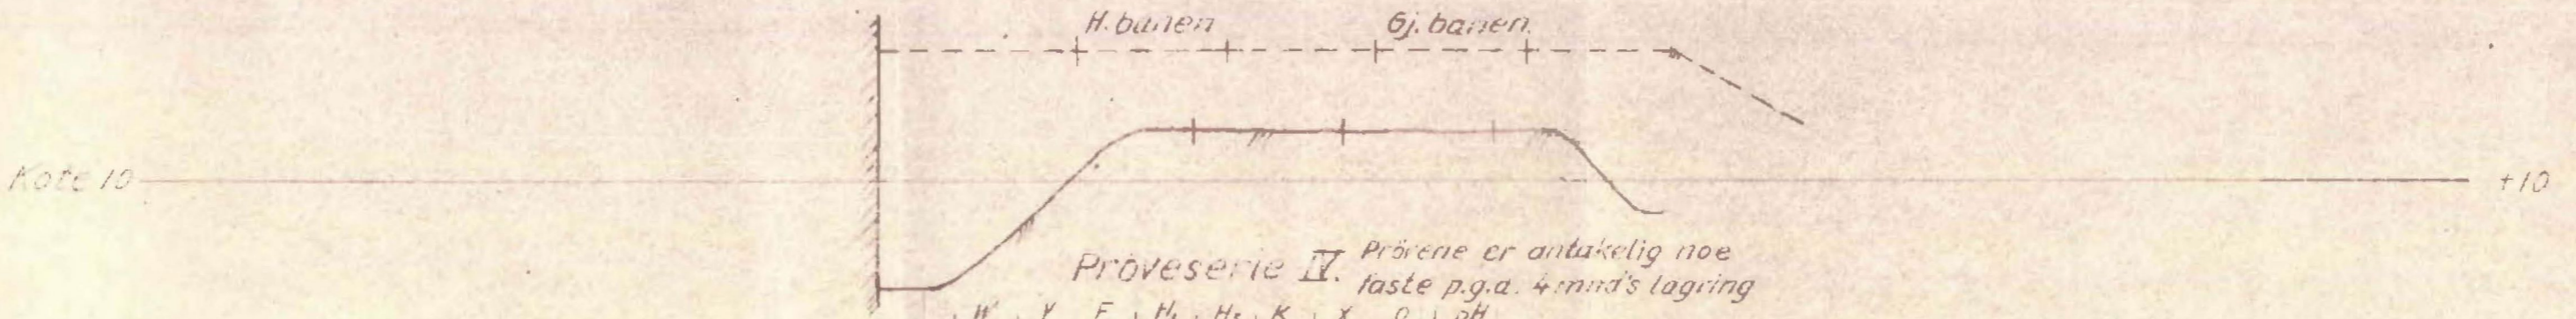 H. banen Gj. banen
Kote 10 +10
Pröveserie IV. Prövene er antakelig noe
faste p.g.a. 4 mnd's lagring
W Y F H₁ H₂ K X O pH